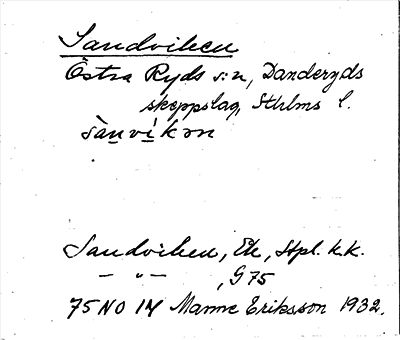 Sandviken
Östra Ryds s:n, Danderyds
skeppslag, Sthlms l.
sànvíkən
Sandviken, Ek, Stpl. k.k.
— „ — , G75
75 NO 14 Manne Eriksson 1932.